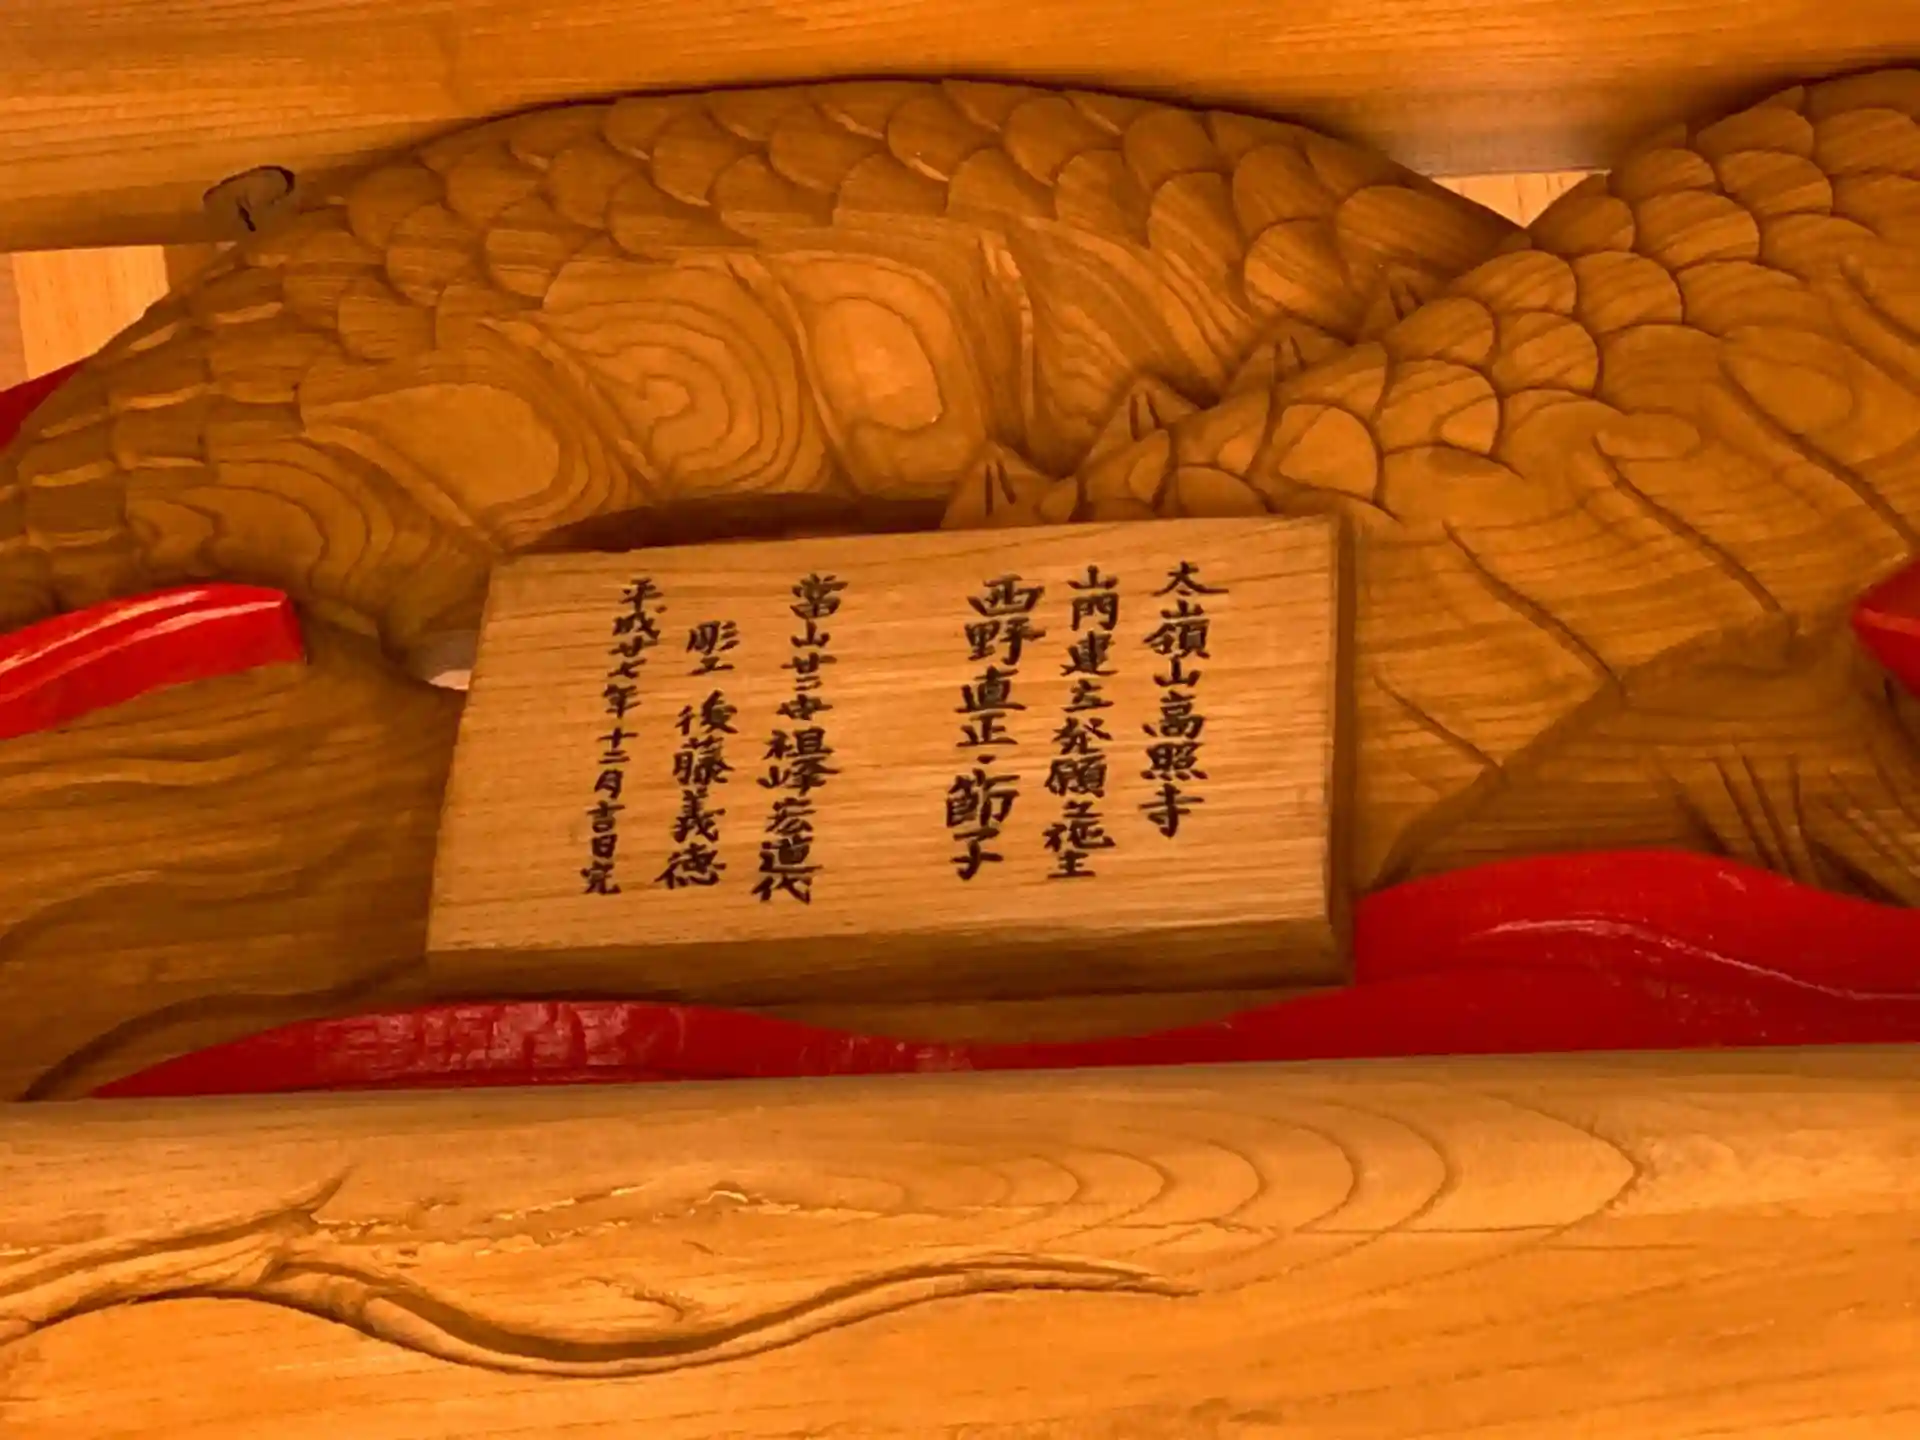 太嶺山高照寺
山門建立発願之施主
西野直正・節子
當山廿二世祖峰宏道代
彫工 後藤義徳
平成廿七年十二月吉日完